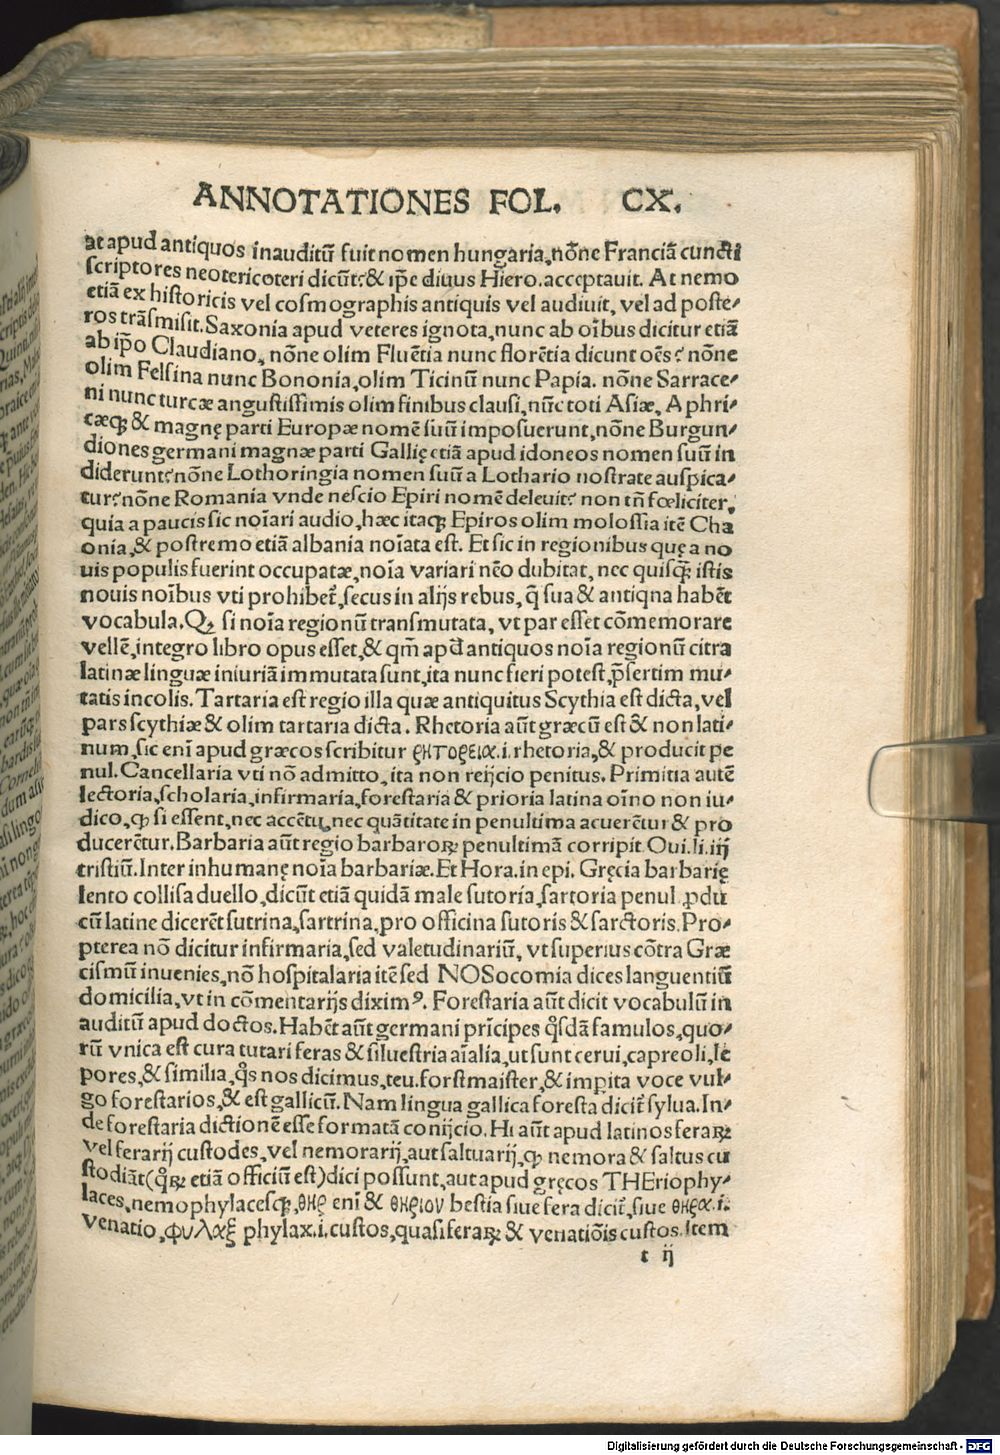 ANNOTATIONES FOL. CX.
at apud antiquos inauditū fuit nomen hungaria, nōne Franciā cuncti
scriptores neotericoteri dicūt? & ip̄e diuus Hiero. acceptauit. At nemo
etiā ex historicis vel cosmographis antiquis vel audiuit, vel ad poste⸗
ros trāsmisit. Saxonia apud veteres ignota, nunc ab oībus dicitur etiā
ab ip̄o Claudiano, nōne olim Fluētia nunc florētia dicunt oēs? nōne
olim Felsina nunc Bononia, olim Ticinū nunc Papia. nōne Sarrace⸗
ni nunc turcæ angustissimis olim finibus clausi, nūc toti Asiæ, Aphri⸗
cæq; & magnę parti Europæ nomē suū imposuerunt, nōne Burgun⸗
diones germani magnæ parti Gallię etiā apud idoneos nomen suū in
diderunt? nōne Lothoringia nomen suū a Lothario nostrate auspica⸗
tur? nōne Romania vnde nescio Epiri nomē deleuit? non tn̄ fœliciter,
quia a paucis sic noīari audio, hæc itaq; Epiros olim molossia itē Cha
onia, & postremo etiā albania noīata est. Et sic in regionibus quę a no
uis populis fuerint occupatæ, noīa variari nēo dubitat, nec quisq̄ istis
nouis noībus vti prohibet᷑, secus in alijs rebus, q̄ sua & antiqna habēt
vocabula. Qꝫ si noīa regionū transmutata, vt par esset cōmemorare
vellē, integro libro opus esset, & qm̄ apd̄ antiquos noīa regionū citra
latinæ linguæ iniuriā immutata sunt, ita nunc fieri potest, p̄sertim mu⸗
tatis incolis. Tartaria est regio illa quæ antiquitus Scythia est dicta, vel
pars scythiæ & olim tartaria dicta. Rhetoria aūt græcū est & non lati⸗
num, sic enī apud græcos scribitur ρητορεια .i. rhetoria, & producit pe
nul. Cancellaria vti nō admitto, ita non reijcio penitus. Primitia autē
lectoria, scholaria, infirmaria, forestaria & prioria latina oīno non iu⸗
dico, ꝙ si essent, nec accētu, nec quātitate in penultima acuerētur & pro
ducerētur. Barbaria aūt regio barbaroꝝ penultimā corripit Oui. li. iij
tristiū. Inter inhumanę noīa barbariæ. Et Hora. in epi. Gręcia barbarię
lento collisa duello, dicūt etiā quidā male sutoría, sartoria penul ꝓdtū
cū latine dicerēt sutrina, sartrina, pro officina sutoris & sarctoris. Pro⸗
pterea nō dicitur infirmaria, sed valetudinariū, vt superius cōtra Græ
cismū inuenies, nō hospitalaria itē sed NOSocomia dices languentiū
domicilia, vt in cōmentarijs diximꝰ. Forestaria aūt dicit vocabulū in
auditū apud doctos. Habēt aūt germani prīcipes qͦsdā famulos, quo⸗
rū vnica est cura tutari feras & siluestria aīalia, ut sunt cerui, capreoli, le
pores, & similia, qͦs nos dicimus, teu. forstmaister, & impita voce vul⸗
go forestarios, & est gallicū. Nam lingua gallica foresta dicit᷑ sylua. In⸗
de forestaria dictionē esse formatā conijcio. Hi aūt apud latinos feraꝝ
vel ferarij custodes, vel nemorarij, aut saltuarij, ꝙ nemora & saltus cu
stodiāt (qͦꝝ etiā officiū est) dici possunt, aut apud gręcos THEriophy⸗
laces, nemophylacesq;, θηρ enī & θηριον bestia siue fera dicit᷑, siue θηρα .i.
venatio, φυλαξ phylax .i. custos, quasi feraꝝ & venatiōis custos. Item
t ij
Digitalisierung gefördert durch die Deutsche Forschungsgemeinschaft - DFG